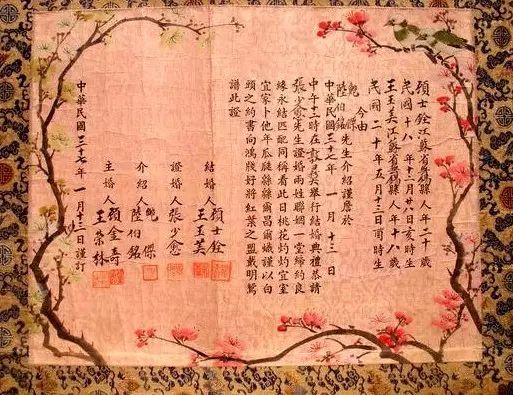 顧士銓江蘇省無錫縣人年二十歲
民國十八年十二月廿八日亥時生
王玉英江蘇省無錫縣人年十八歲
民國二十年五月十三日酉時生
今由
鮑傑
陸伯銘先生介紹謹詹於
中華民國三十七年一月十三日
中午十二時在舉行結婚典禮恭請
張少愈先生證婚兩姓聯姻一堂締約良
緣永結匹配同稱看此日桃花灼灼宜室
宜家卜他年瓜瓞緜緜爾昌爾熾謹以白
頭之約書向鴻牋好將紅葉之盟載明鴛
譜此證
結婚人 顧士銓
王玉英
證婚人 張少愈
介紹人 鮑傑
陸伯銘
主婚人 顧金壽
王榮林
中華民國三十七年一月十三日謹訂